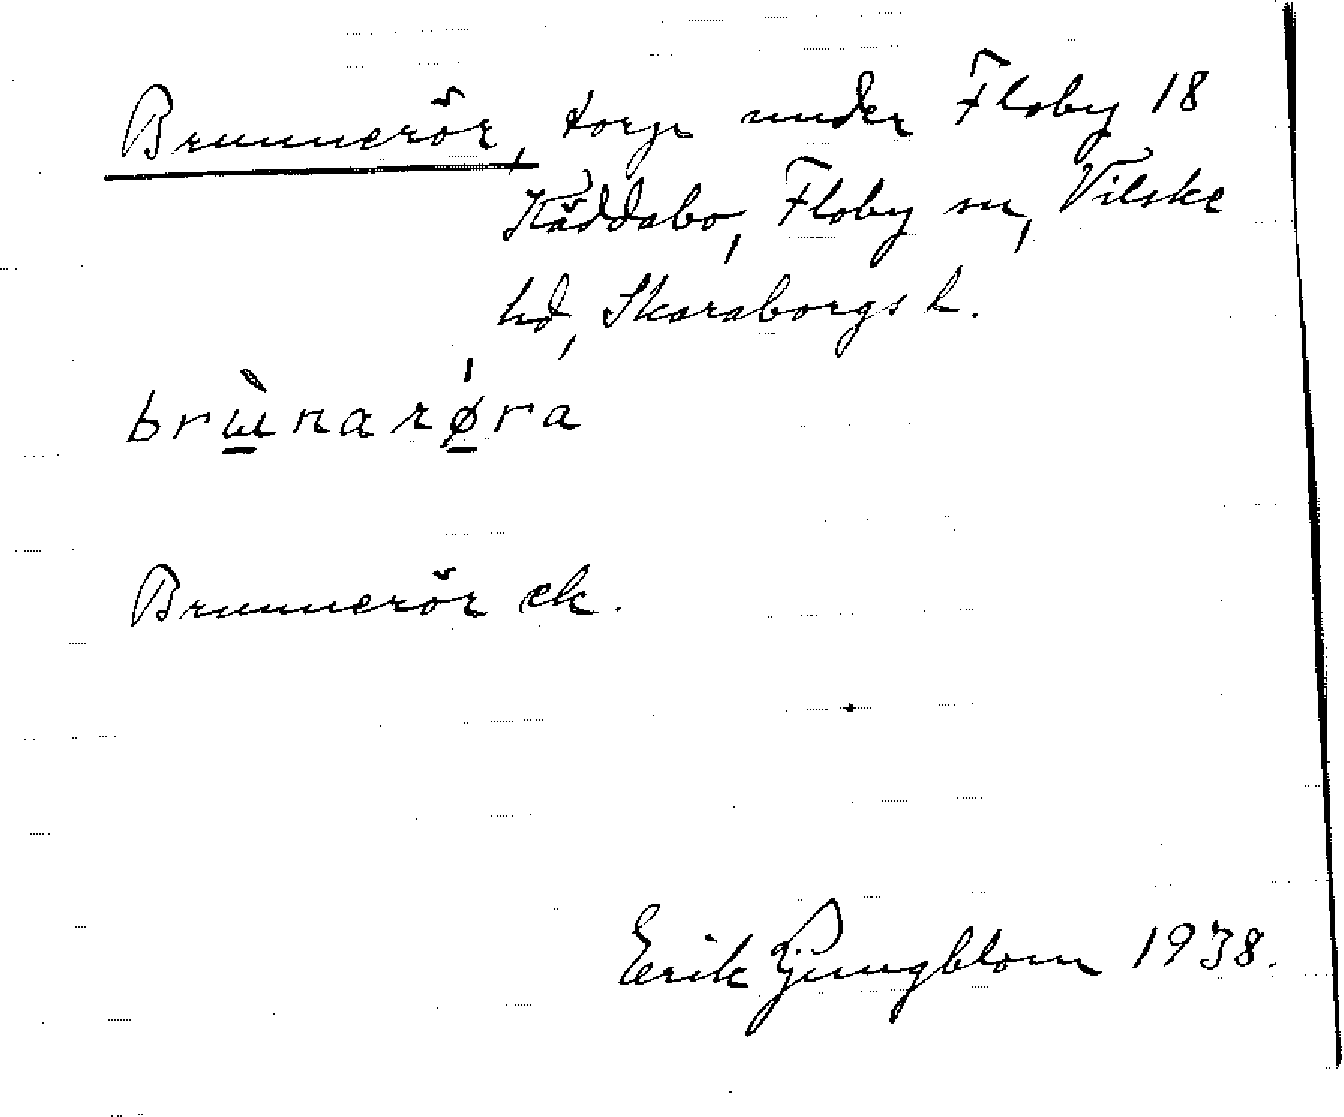 Brunnerör, torp under Floby 18
Käddabo, Floby sn, Vilske
hd, Skaraborgs l.
brɯ̀narǿra
Brunnerör ek.
Erik Ljungblom 1938.